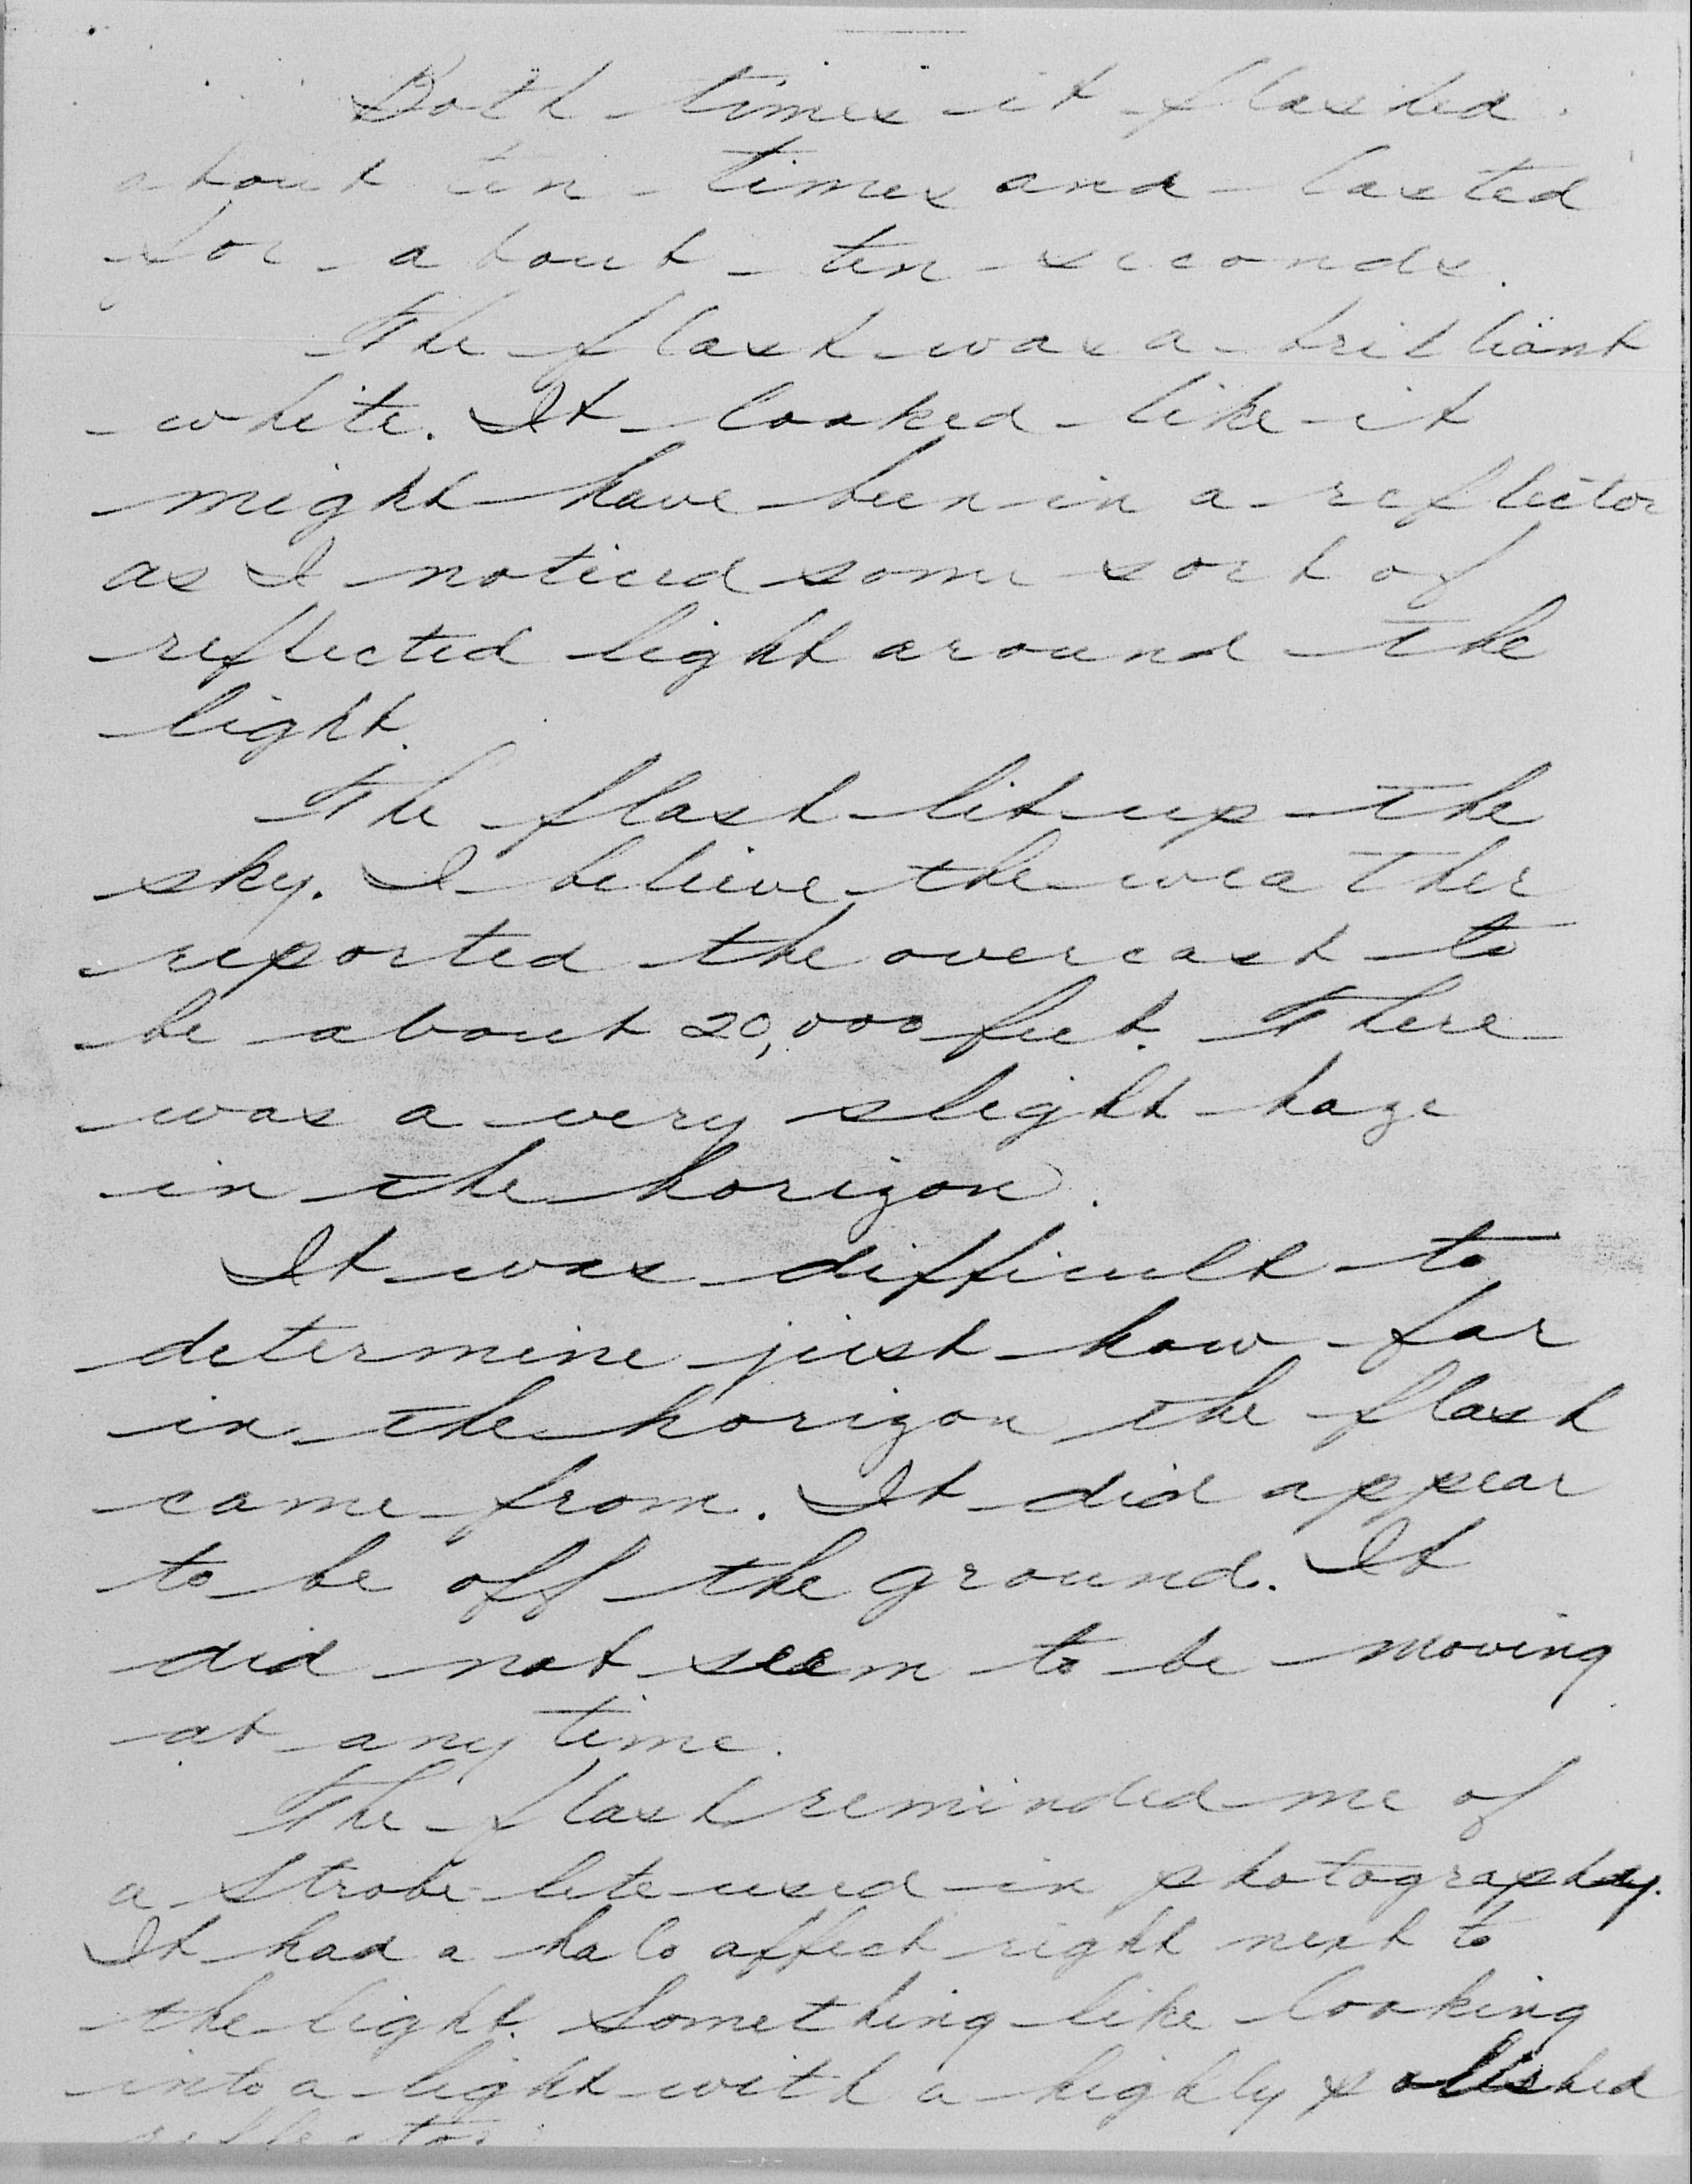 Both times it flashed
about ten times and lasted
for about ten seconds.
The flash was a brilliant
white. It looked like it
might have been in a reflector
as I noticed some sort of
reflected light around the
light.
The flash lit up the
sky. I believe the weather
reported the overcast to
be about 20,000 feet. There
was a very slight haze
in the horizon.
It was difficult to
determine just how far
in the horizon the flash
came from. It did appear
to be off the ground. It
did not seem to be moving
at any time.
The flash reminded me of
a strobe lite used in photography.
It had a halo affect right next to
the light. Something like looking
into a light with a highly polished
reflector.